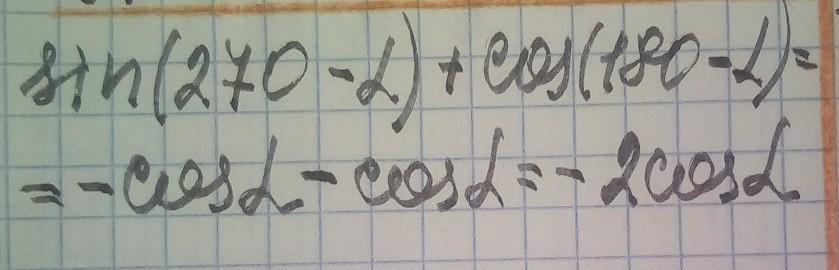 sin(270-α)+cos(180-α)=
=-cosα-cosα=-2cosα